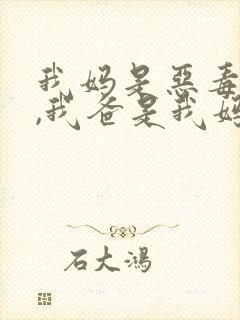 我妈是恶毒
,我爸是我妈
石大鸿